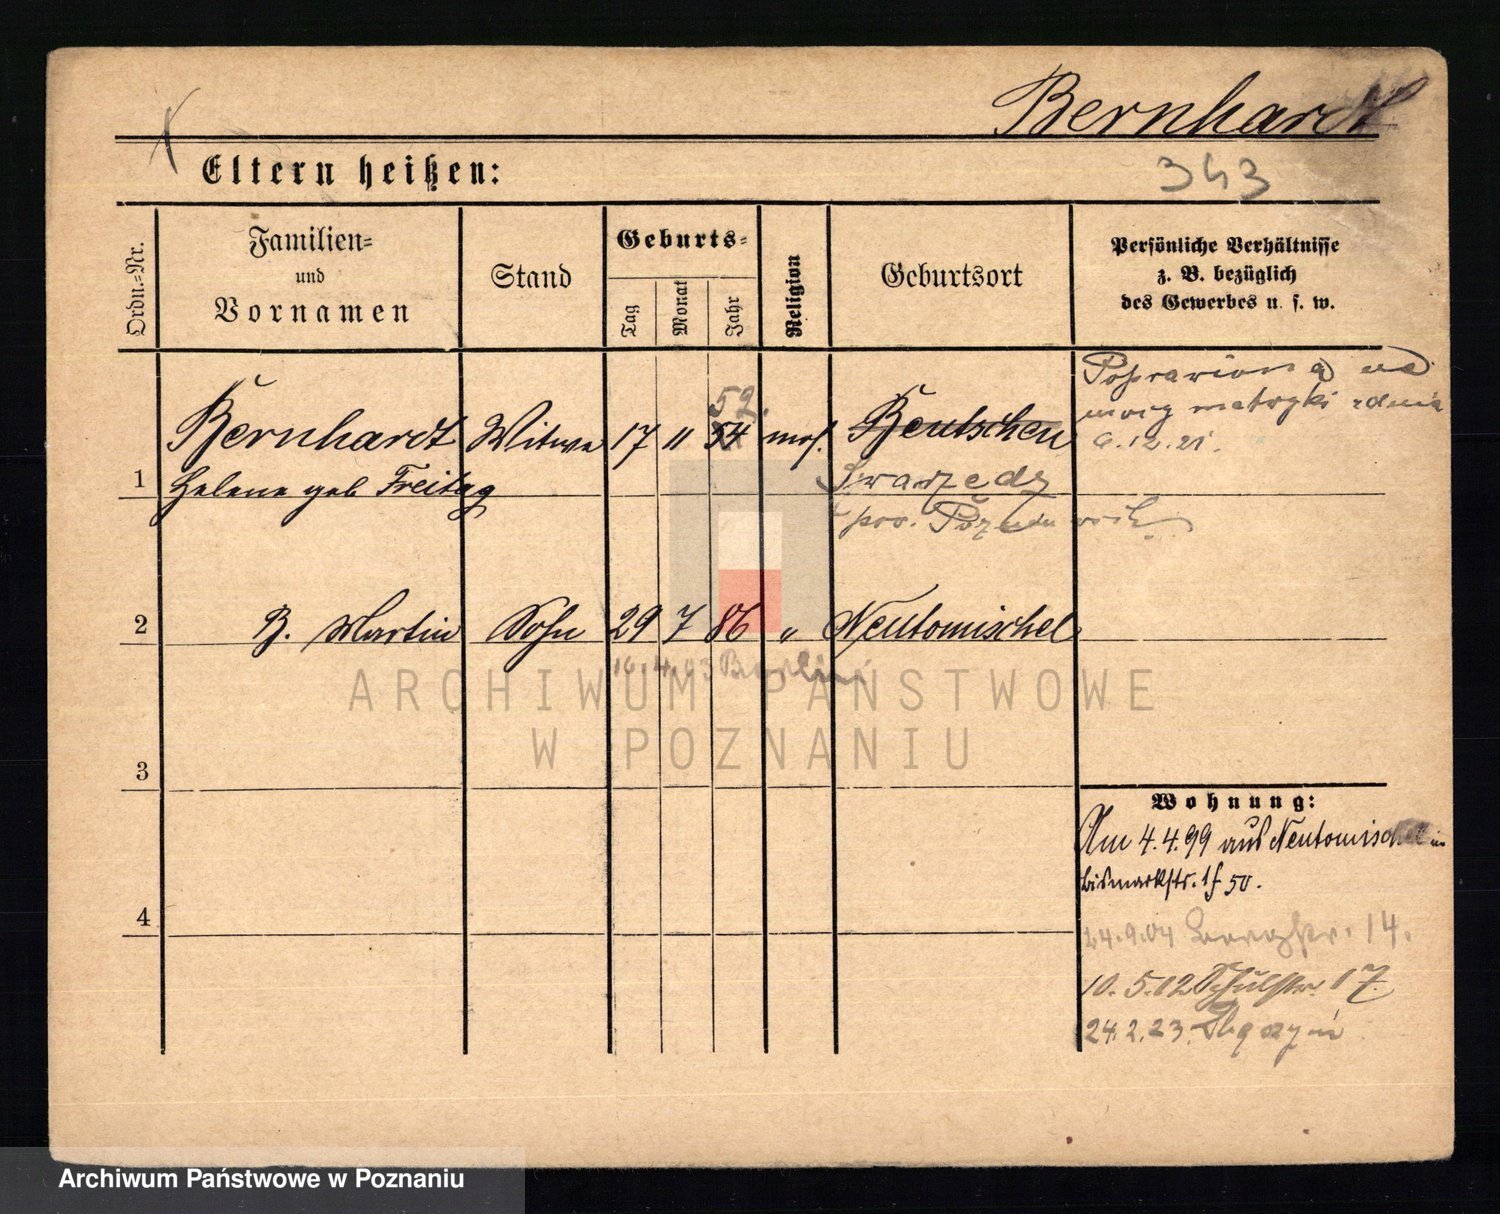 Bernhardt
Eltern heißen:
343
Ordn.-Nr.
Familien-
und
Vornamen
Stand
Geburts-
Tag
Monat
Jahr
Religion
Geburtsort
Persönliche Verhältnisse
z. B. bezüglich
des Gewerbes u. s. w.
1
Bernhardt
Helene geb Freitag
Witwe
17
11
54
52.
mos.
Bentschen
Swarzędz
pow. Poznań
na
mocy metryki z dnia
6.12.21.
2
B. Martin
Sohn
29
7
86
"
Neutomischel
Berlin
3
4
Wohnung:
Am 4.4.99 aus Neutomischel
Bismarkstr. 1 f 50.
24.9.04 14.
10.5.12 Schulstr. 17.
24.2.23. Zbąszyń
ARCHIWUM PAŃSTWOWE
W POZNANIU
Archiwum Państwowe w Poznaniu